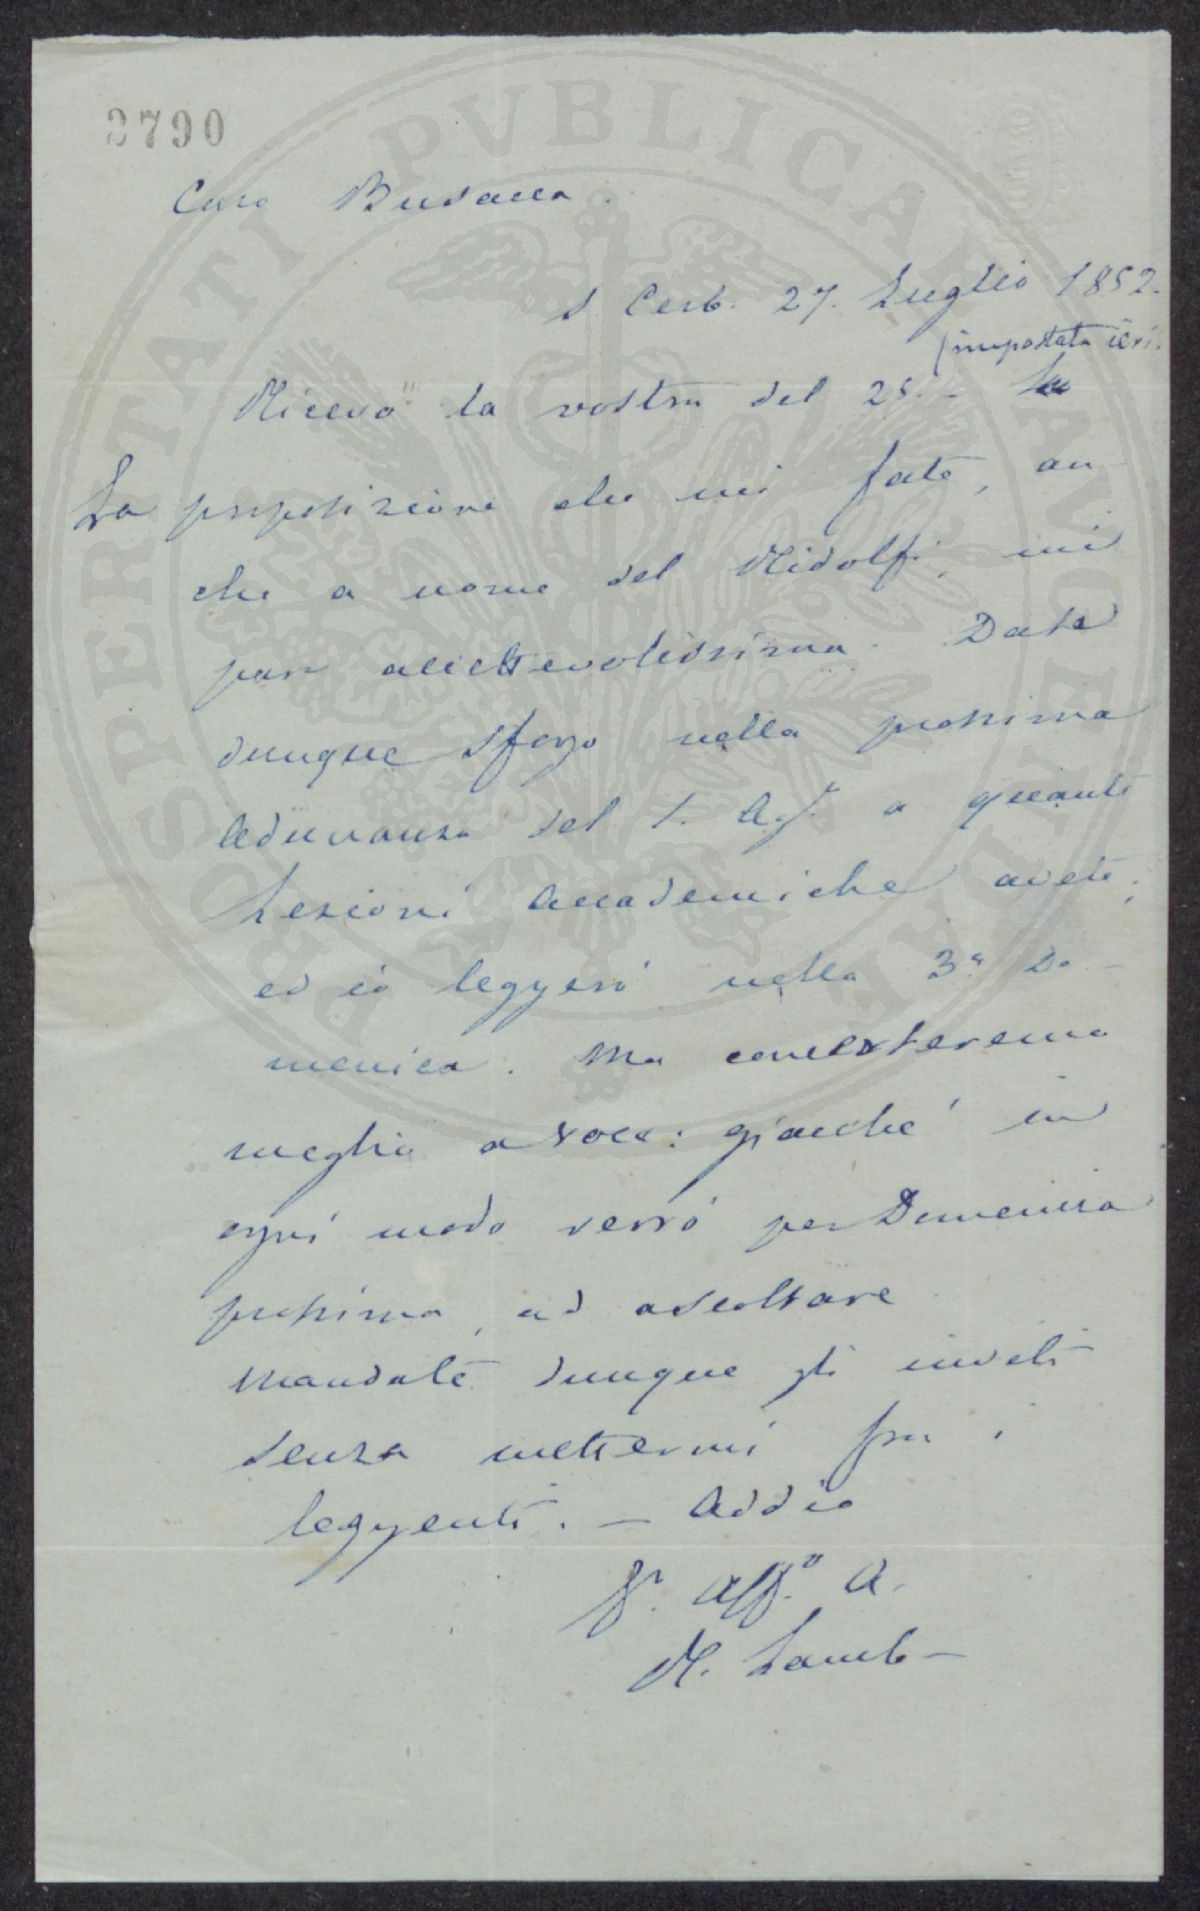 PROSPERITATI PVBLICAE AVGENDAE
3790
Caro Busacca.
S. Cerb. 27. Luglio 1852.
(impostata ieri.
Ricevo la vostra del 25. –
La proposizione che mi fate, an-
che a nome del Ridolfi, mi
par accettevolissima. Date
dunque sfogo nella prossima
Adunanza del 1. Ag. a quante
Lezioni Accademiche avete;
ed io leggerò nella 3a. Do-
menica. Ma concerteremo
meglio a voce: giacché in
ogni modo verrò per Domenica
prossima, ad ascoltare.
Mandate dunque gli inviti
senza mettermi fra i
leggenti. – Addio
Aff.o A.
R. Lamb–